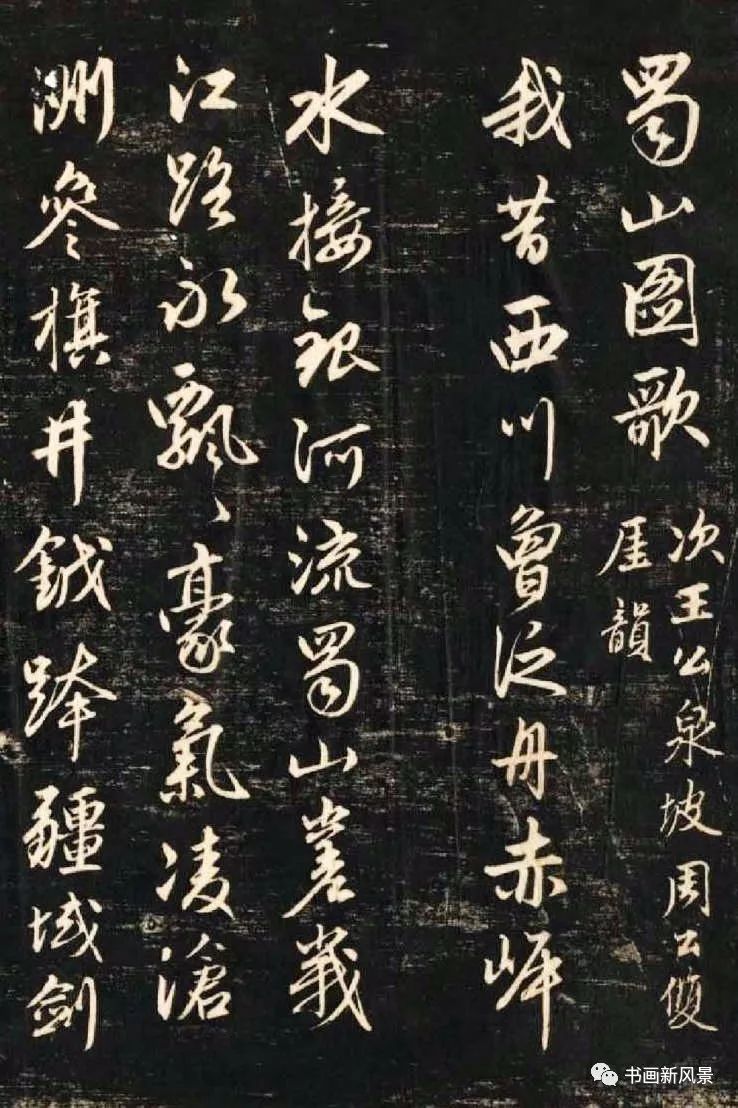 蜀山圖歌
次王公泉坡周公雙
厓韻
我昔西川曾泛舟赤岬
水接銀河流蜀山嵳峩
江路永飄〻豪氣凌滄
洲參旗井鉞跨疆域劍
书画新风景